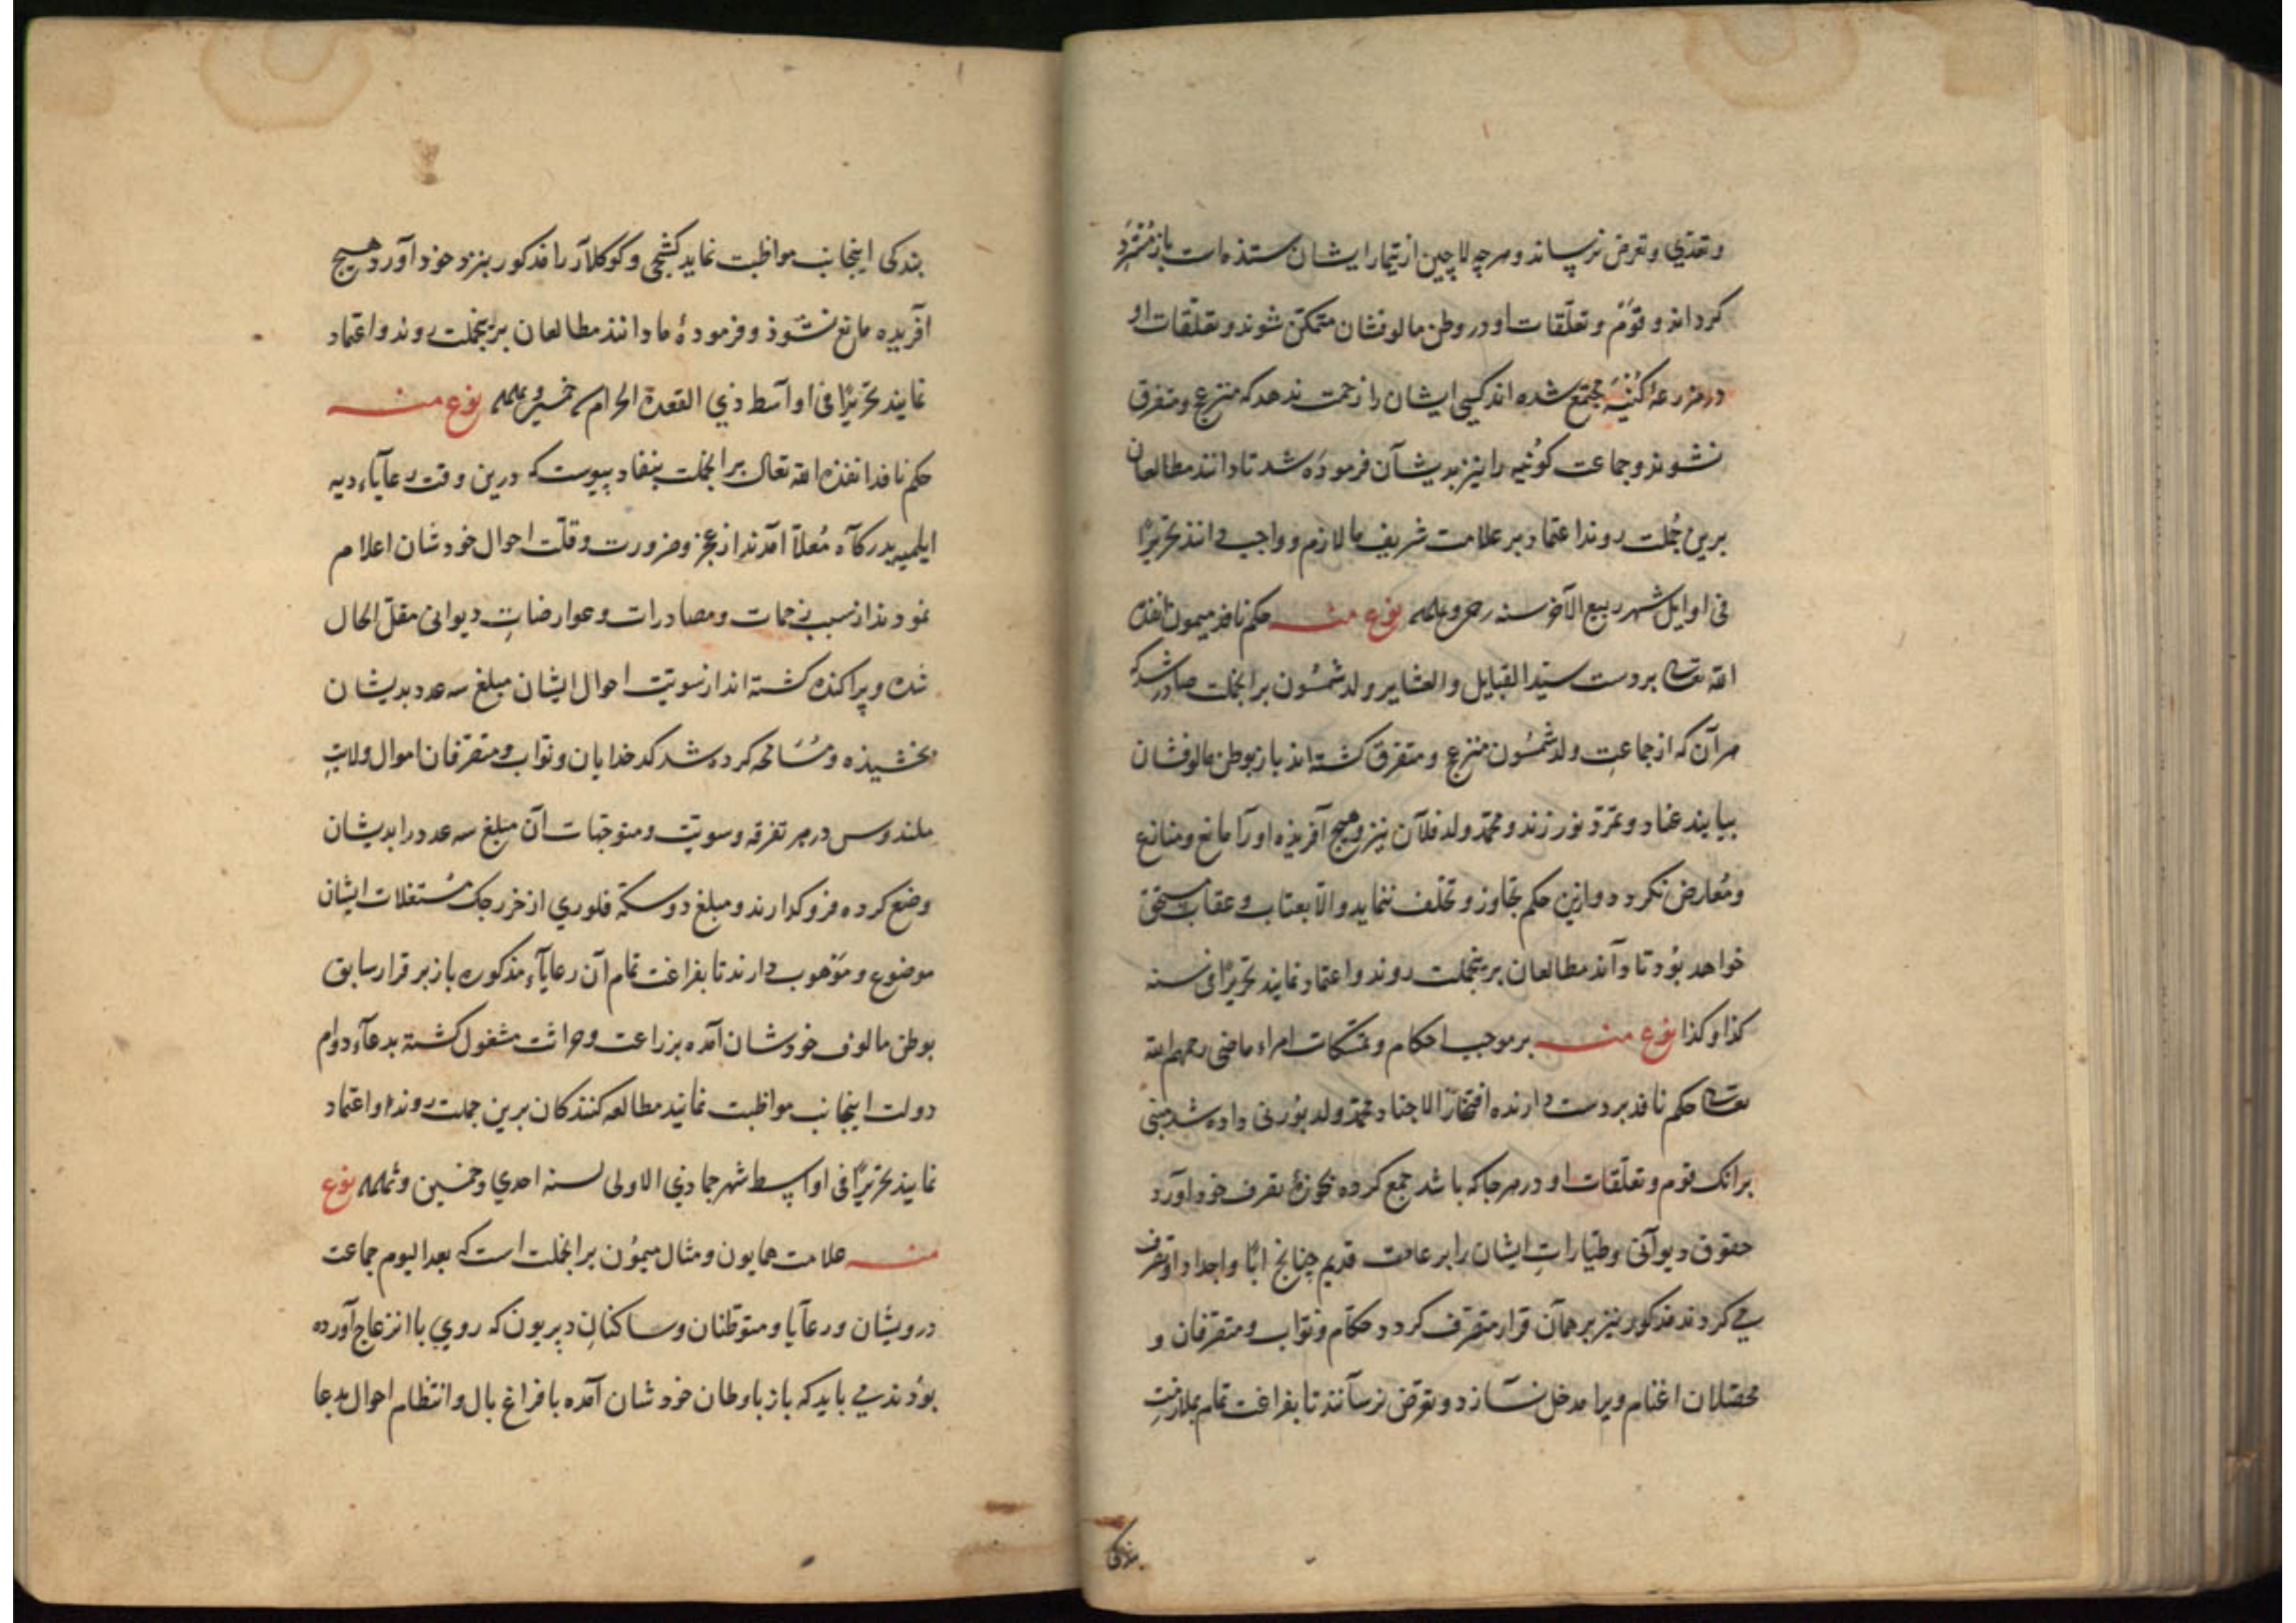 وتعدّي وتعرض نرساند و هرچه لاچین از تیمار ایشان ستذه است باز مسترد
کرداند و قوم و تعلّقات او در وطن مالوفشان متمکن شوند و تعلقات او
در مزرعهٔ مجتمع شده اند کسی ایشان را زحمت ندهد که منزعج و متفرق
نشوند و جماعت را نیز بدیشان فرموده شد تا دانند مطالعان
برین جُملت روند اعتماد بر علامت شریف ما لازم و واجب دانند تحریرًا
فی اوایل شهر ربیع الآخر سنه نوع منه حکم نافذ میمون نفذه
الله تعالی بر دست سیّد القبایل والعشایر ولد شمسُون برانجملت صادر شد که
هر آن که از جماعتِ ولد شمسُون منزعج و متفرق کشته اند باز بوطن مالوفشان
بیایند عناد و تمرّد نورزند و محمّد ولد فلان نیز و هیچ آفریذه او را مانع و منازع
و مُعارض نکردد و ازین حکم تجاوز و تخلف ننماید والّا بعتاب و عقاب مستحق
خواهد بُود تا دانند مطالعان برینجملت روند و اعتماد نمایند تحریرًا فی سنه
کذا و کذا نوع منه بر موجب احکام و تمسّکات امراء ماضی رحمهم الله
تعالی حکم نافذ بر دست دارنده افتخار الاجناد محمّد ولد داده شد مبنی
برانک قوم و تعلّقات او در هر جا که باشد جمع کرده بحوزهٔ تصرف خود آورد
حقوق دیوانی و طیّاراتِ ایشان را بر عادت قدیم چنانچ ابا و اجداد او تصرف
می کردند مذکور نیز بر همان قرار متصرف کردد حکّام و نوّاب و متصرفان و
محصّلان اغنام ویرا مدخل نسازد و تعرّض نرسانند تا بفراغت تمام بملازمتِ
بندکی
بندکی اینجانب مواظبت نماید کشجی و کوکلار را مذکور بنزد خود آورد هیچ
آفریده مانع نشوذ و فرمودهٔ ما دانند مطالعان برینجملت روند و اعتماد
نمایند تحریرًا فی اواسط ذی القعدة الحرام نوع منه
حکم نافذ انفذه الله تعالی برانجملت بنفاد پیوست که درین وقت رعایاء دیه
بدرکاه مُعلّا آمدند از عجز و ضرورت و قلّت احوال خودشان اعلام
نمودند از سبب زحمات و مصادرات و عوارضاتِ دیوانی مقلّ الحال
شده و پراکنده کشته اند از سویّت احوال ایشان مبلغ سه عدد بدیشان
بخشیذه و مُسامحه کرده شد کدخدایان و نوّاب و متصرّفان اموال ولایتِ
در هر تفرقه و سویّت و متوجّهات آن مبلغ سه عدد را بدیشان
وضع کرده فروکذارند و مبلغ دو سکّهٔ فلوری از خرجک مُستغلات ایشان
موضوع و موهوب دارند تا بفراغت تمام آن رعایاء مذکوره باز بر قرار سابق
بوطن مالوف خودشان آمده بزراعت و حراثت مشغول کشته بدعاء دوام
دولت اینجانب مواظبت نمایند مطالعه کنندکان برین جملت روند و اعتماد
نمایند تحریرًا فی اواسط شهر جمادی الاولی لسنه احدی و خمسین و نوع
منه علامت همایون و مثال میمُون برانجملت است که بعد الیوم جماعت
درویشان و رعایا و متوطّنان و ساکنانِ که روی با انزعاج آورده
بوُدند می باید که باز باوطان خودشان آمده با فراغ بال و انتظام احوال بدعا